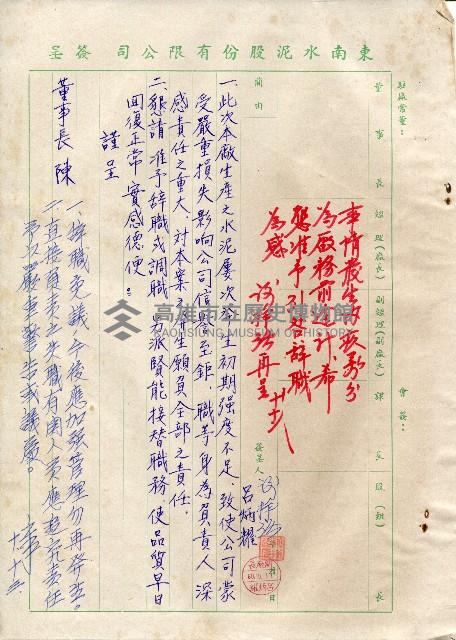 東南水泥股份有限公司 簽呈
駐廠常董：
董事長
經理(廠長)
副經理(副廠長)
課主
股(組)長
會簽：
簡由
簽呈人
月 日
一、此次本廠生產之水泥屢次發生初期强度不足、致使公司蒙
受嚴重損失影响公司信譽至鉅、職等身為負責人深
感責任之重大、对本案之發生願負全部之責任。
二、懇請 准予辞職或調職、另派賢能接替職務、使品質早日
回復正常、實感德便。
謹呈
董事長 陳
呂炳耀
事情發生
為廠務前途計、希
懇准予引咎辞職
為感
再呈
一、辞職免議、今後應加强管理勿再發生。
二、直接負責之失職有關人員應追究責任
予以嚴重警告或議處。
高雄市立歷史博物館
KAOHSIUNG MUSEUM OF HISTORY